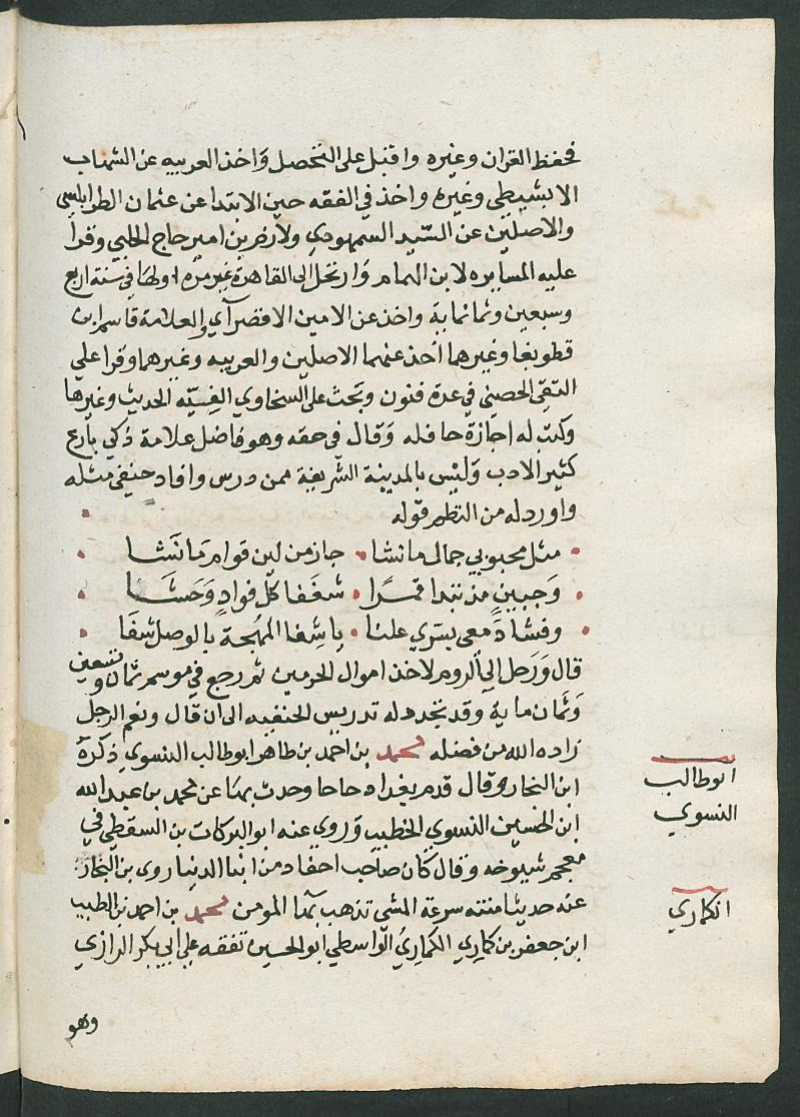 فحفظ القران وغيره واقبل على التحصل واخذ العربيه عن الشهاب
الابشيطي وغيره واخذ في الفقه حين الابتدا عن عثمان الطرابلسي
والاصلين عن السيد السمهودي ولازم بن امير حاج الحلبي وقرا
عليه المسايره لابن الهمام وارتحل الى القاهرة غير مرة اولها في سنة اربع
وسبعين وثمانماية واخذ عن الامين الاقصرآي والعلامة قاسم ابن
قطوبغا وغيرهما اخذ عنهما الاصلين والعربيه وغيرهما وقرا على
التقي الحصني في عدة فنون وبحث على السخاوي الفيته الحديث وغيرها
وكتب له اجازة حافله وقال في حقه وهو فاضل علامة ذكي بارع
كثير الادب وليس بالمدينة الشريفة ممن درس وافاد حنفي مثله
واورد له من النظم قوله
مثل محبوبي جمال ما نشا جاز من لين قوام ما نشا
وجبين مذ تبدا قمرًا شغفا كل فوادٍ وحشا
وفشا دمعي بسري علنا يا شفا المهجة بالوصل شفا
قال ورحل الى الروم لاخذ اموال الحرمين ثم رجع في موسم ثمان وتسعين
وثمان ماية وقد تجدد له تدريس الحنفيه الى ان قال ونعم الرجل
زاده الله من فضله محمد بن احمد بن طاهر ابو طالب النسوي ذكره
ابن النجار وقال قدم بغداد حاجا وحدث بها عن محمد بن عبد الله
ابن الحسين النسوي الخطيب وروي عنه ابو البركات بن السقطي في
معجم شيوخه وقال كان صاحب احفاد من ابنا الدنيا روى بن النجار
عنه حديثا متنه سرعة المشى تذهب بها المومن محمد بن احمد بن الطيب
ابن جعفر بن كماري الكماريُ الواسطي ابو الحسين تفقه على ابي بكر الرازي
وهو
ابو طالب
النسوي
الكماري